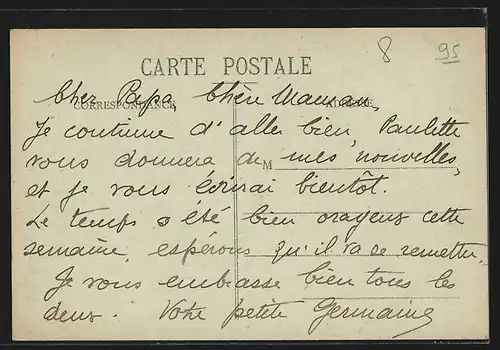 8 95
CARTE POSTALE
CORRESPONDANCE ADRESSE
Cher Papa, Chère Maman,
Je continue d'aller bien, Paulette
vous donnera de mes nouvelles,
M
et je vous écrirai bientôt.
Le temps a été bien orageux cette
semaine, espérons qu'il va se remettre.
Je vous embrasse bien tous les
deux. Votre petite Germaine